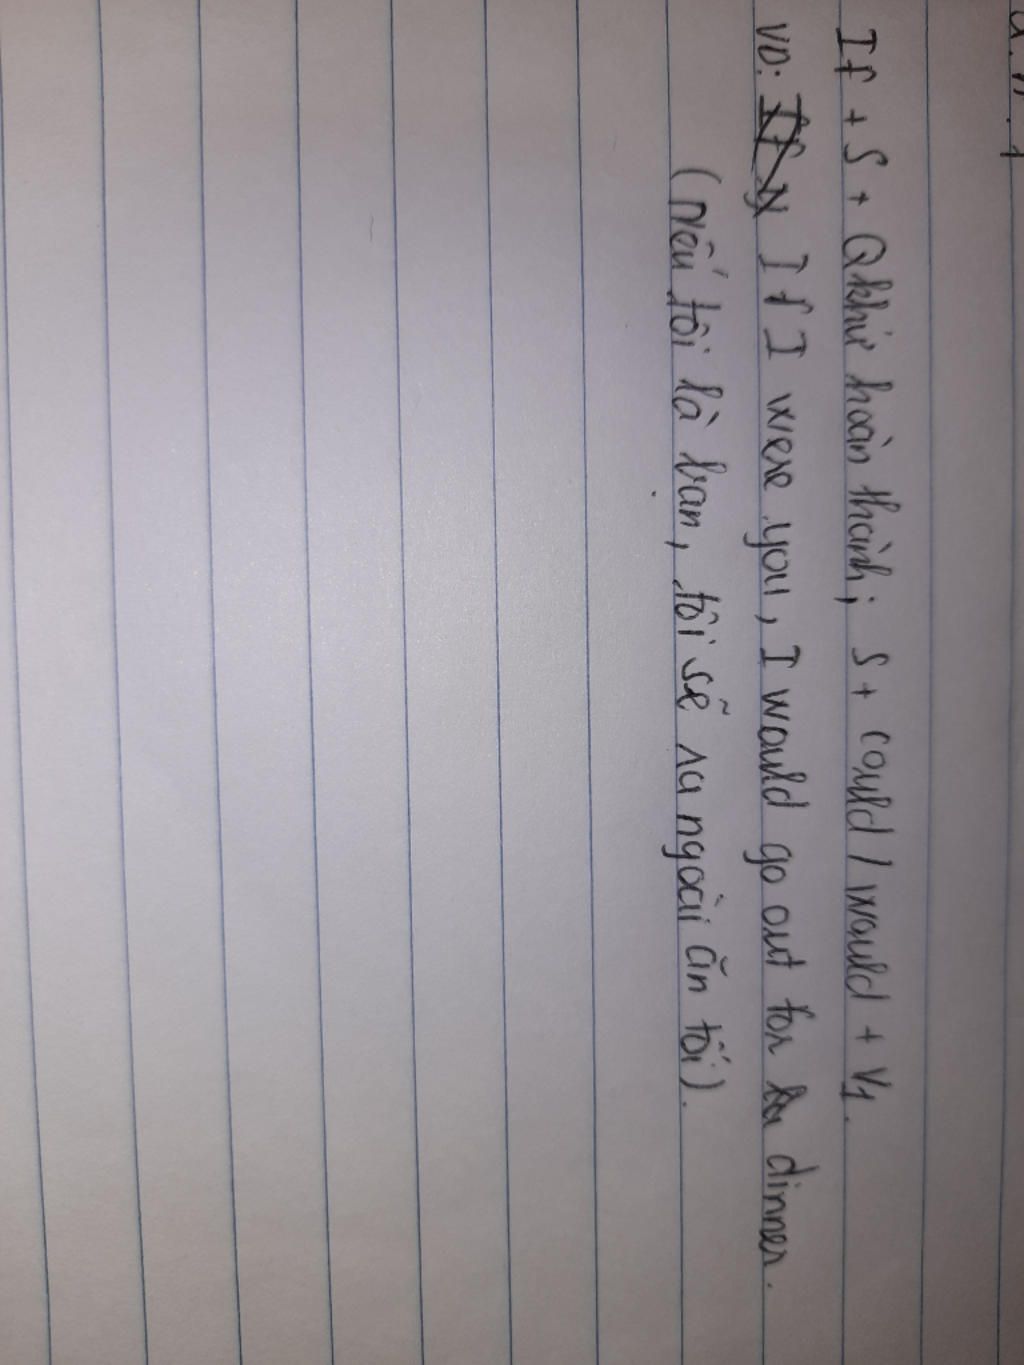 If + S + Qkhứ hoàn thành; S + could / would + V1.
VD: If I were you, I would go out for dinner.
(nếu tôi là bạn, tôi sẽ ra ngoài ăn tối).